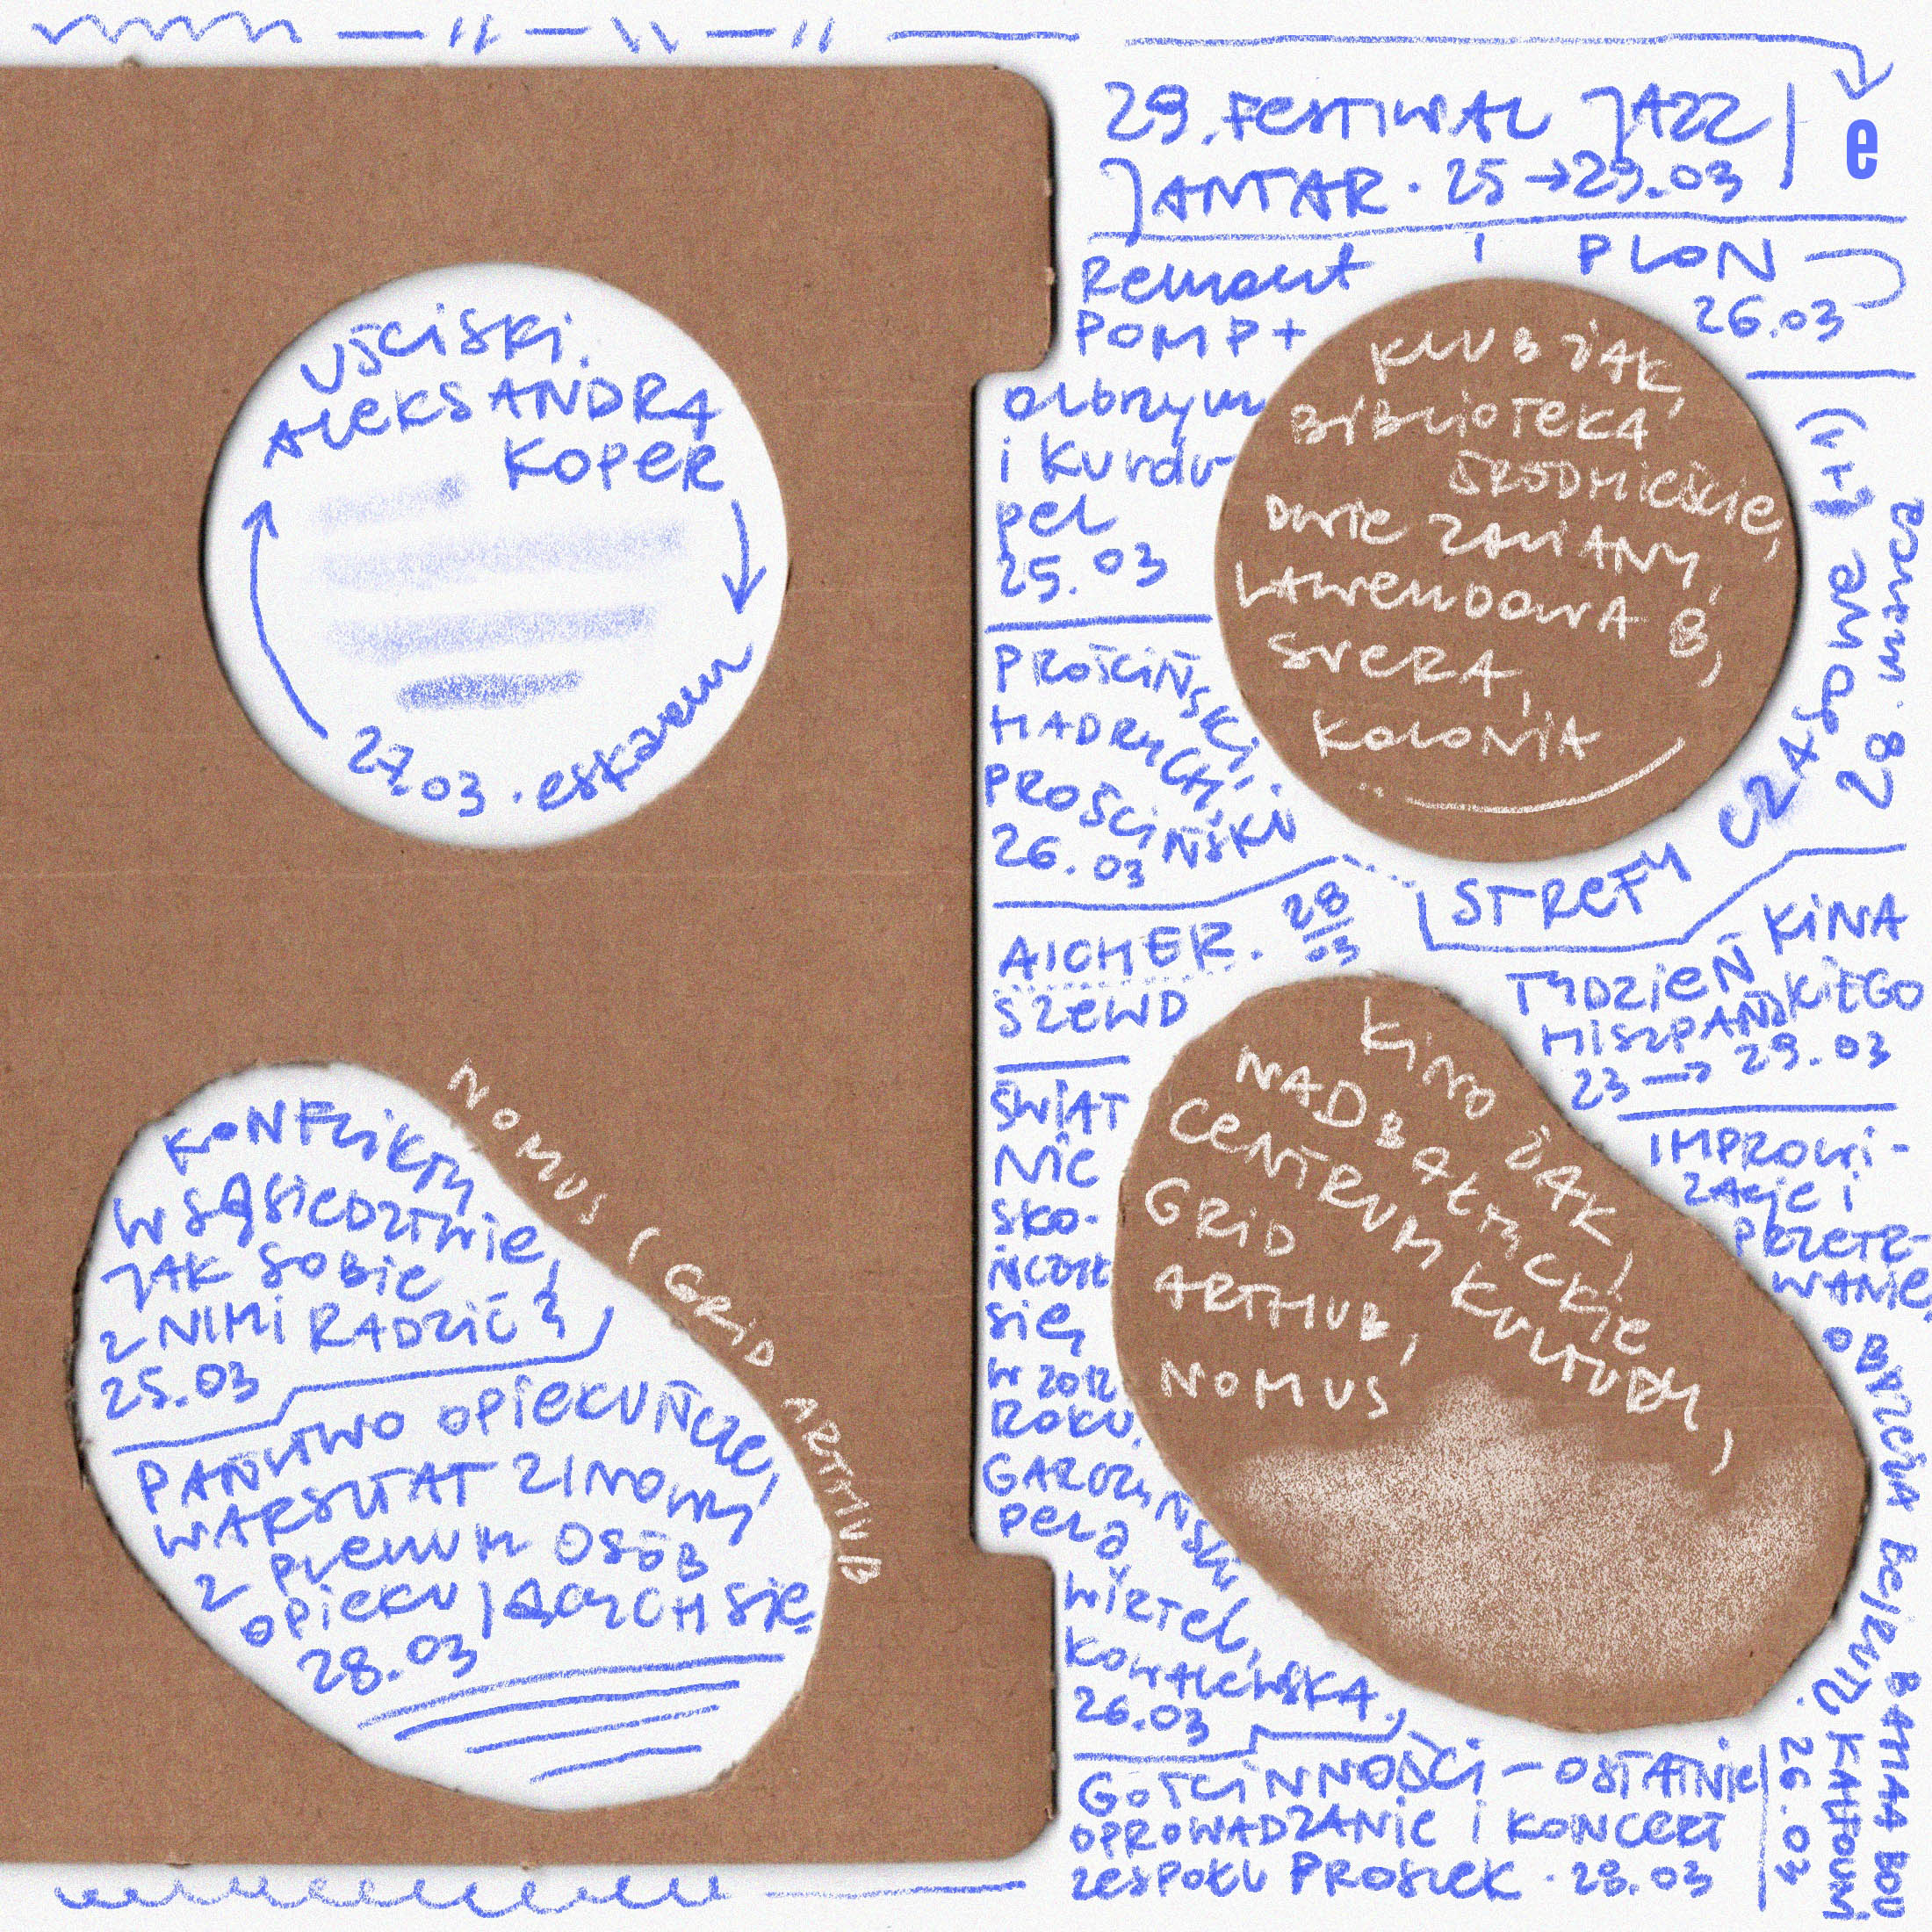 29. FESTIWAL JAZZ
JANTAR · 25 → 29.03
e
UŚCISKI.
ALEKSANDRA
KOPER
27.03 · eskaem
KONFLIKTY
W SĄSIEDZTWIE,
JAK SOBIE
Z NIMI RADZIĆ?
25.03
PAŃSTWO OPIEKUŃCZE,
WARSZTAT ZINOWY
Z PLENUM OSÓB
OPIEKUJĄCYCH SIĘ
28.03
NOMUS ( GRID ARTHUB
Remont
POMP +
olbrzym
i Kurdu-
pel
25.03
PLON
26.03
KLUB ŻAK,
BIBLIOTEKA
ŚRÓDMIEŚCIE,
DWIE ZMIANY,
LAWENDOWA 8,
SVERA,
KOLONIA
PROŚCIŃSKI,
MADRYCKI,
PROŚCIŃSKI
26.03
STREFY CZASOWE (1+1)
28 marca
AICHER. 28/03
SZEWD
TYDZIEŃ KINA
HISZPAŃSKIEGO
23 → 29.03
KINO ŻAK,
NADBAŁTYCKIE
CENTRUM KULTURY,
GRID
ARTHUB,
NOMUS
ŚWIAT
NIE
SKO-
ŃCZYŁ
SIĘ
W 2012
ROKU.
GARCZYŃSKI
PERA,
WIRTEL,
KOWALEWSKA,
26.03
IMPROWI-
ZACJE I
PRZETR-
WANIE,
OBYRZEŻA BEJRUTU.
26.03
GOŚCINNOŚCI – OSTATNIE
OPROWADZANIE I KONCERT
ZESPOŁU PROSZEK · 28.03